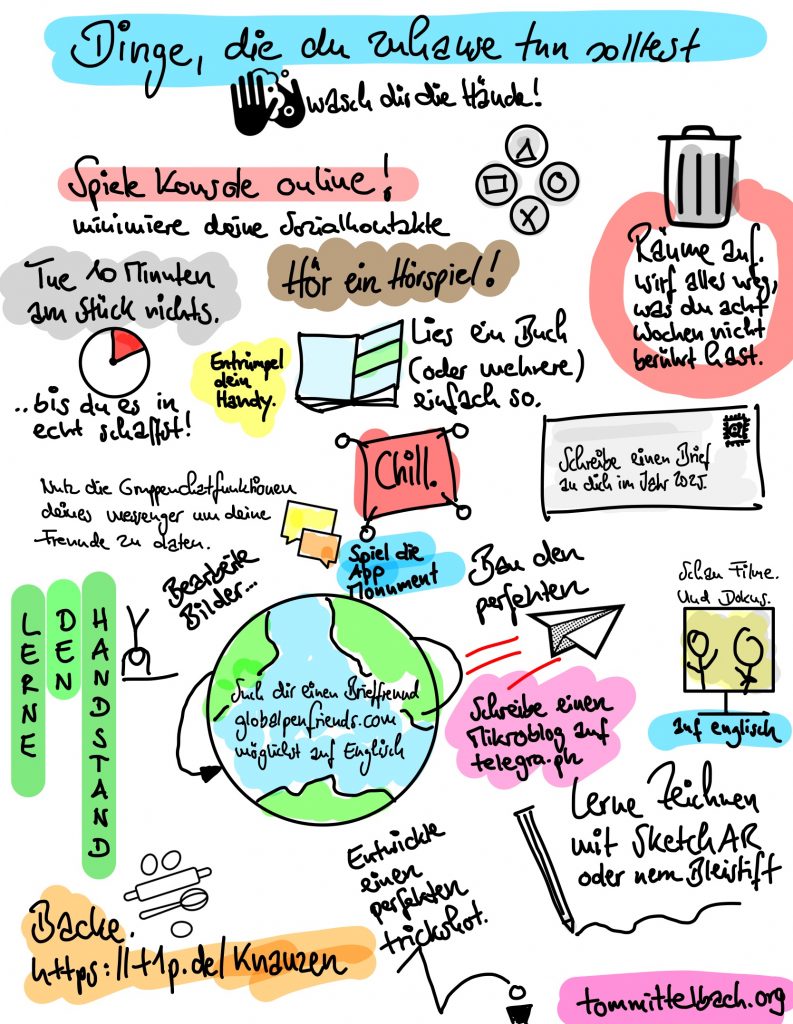 Dinge, die du zuhause tun solltest
wasch dir die Hände!
Spiele Konsole online!
minimiere deine Sozialkontakte
Räume auf.
wirf alles weg,
was du acht
Wochen nicht
berührt hast.
Tue 10 Minuten
am Stück nichts.
..bis du es in
echt schaffst!
Hör ein Hörspiel!
Entrümpel
dein
Handy.
Lies ein Buch
(oder mehrere)
einfach so.
Chill.
Schreibe einen Brief
an dich im Jahr 2025.
Nutz die Gruppenchatfunktionen
deines Messenger um deine
Freunde zu daten.
Spiel die
App
Monument
Bearbeite
Bilder...
Bau den
perfekten
Schau Filme.
Und Dokus.
auf englisch
LERNE
DEN
HANDSTAND
Such dir einen Brieffreund
globalpenfriends.com
möglichst auf Englisch
Schreibe einen
Mikroblog auf
telegra.ph
Lerne Zeichnen
mit SketchAR
oder nem Bleistift
Entwickle
einen
perfekten
trickshot.
Backe.
https://t1p.de/Knauzen
tommittelbach.org